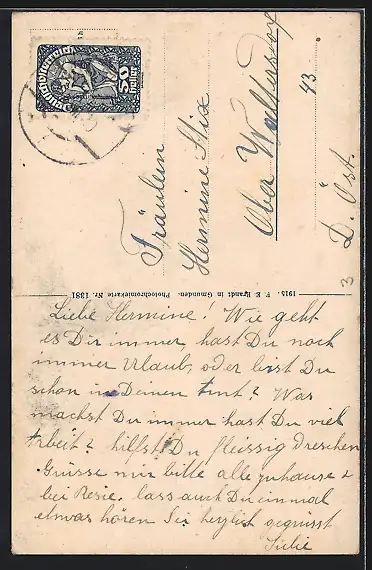 50
Heller
Fräulein
Hermine Stix
Ober Wöllersdorf
43.
D. Öst.
3
1915 F. E. Brandt in Gmunden. Photochromiekarte Nr. 1381
Liebe Hermine! Wie geht
es Dir immer, hast Du noch
immer Urlaub, oder bist Du
schon in Deinen Amt? Was
machst Du immer hast Du viel
Arbeit? hilfst Du fleissig dreschen
Grüsse mir bitte alle zuhause u
bei Resie. lass auch Du einmal
etwas hören Sei herzlich gegrüsst
Julie